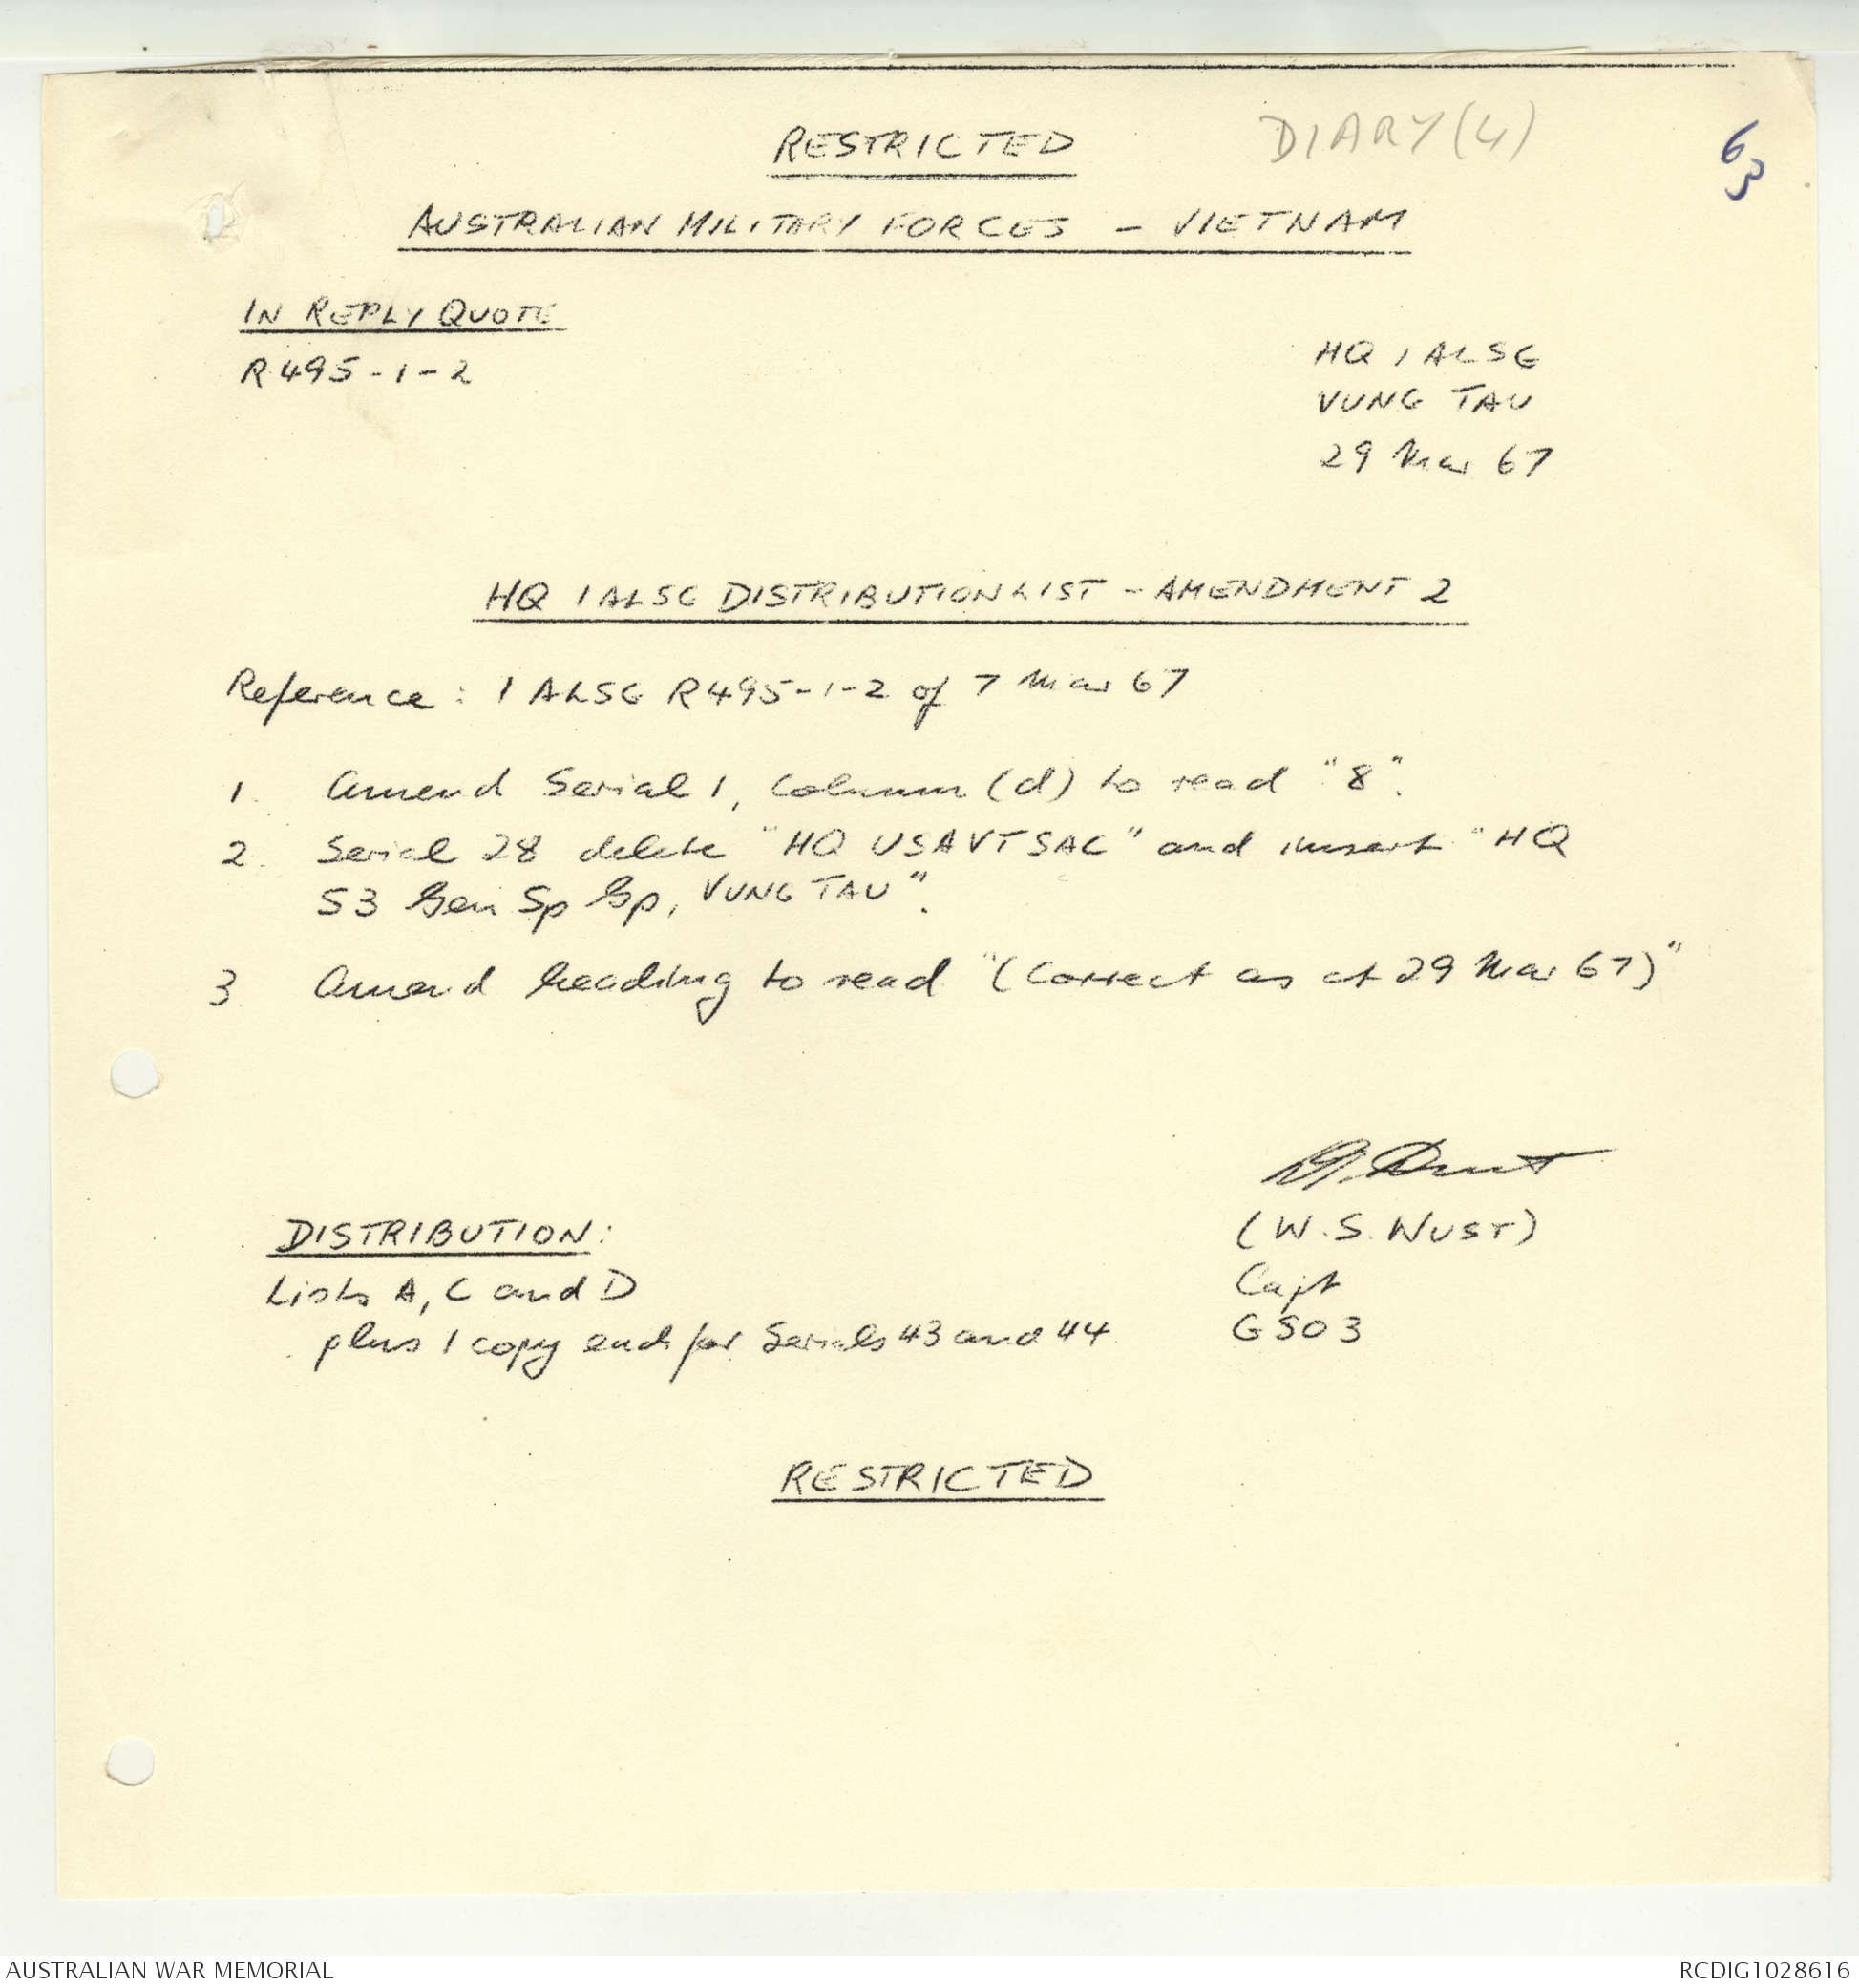 RESTRICTED
DIARY (4)
63
AUSTRALIAN MILITARY FORCES - VIETNAM
IN REPLY QUOTE
R495-1-2
HQ 1 ALSG
VUNG TAU
29 Mar 67
HQ 1 ALSG DISTRIBUTION LIST - AMENDMENT 2
Reference: 1 ALSG R495-1-2 of 7 Mar 67
1. Amend Serial 1, Column (d) to read "8".
2. Serial 28 delete "HQ USAVTSAC" and insert "HQ
53 Gen Sp Gp, VUNG TAU".
3 Amend heading to read "(Correct as at 29 Mar 67)"
DISTRIBUTION:
Lists A, C and D
plus 1 copy each for Serials 43 and 44
(W.S. WUST)
Capt
GSO3
RESTRICTED
AUSTRALIAN WAR MEMORIAL
RCDIG1028616